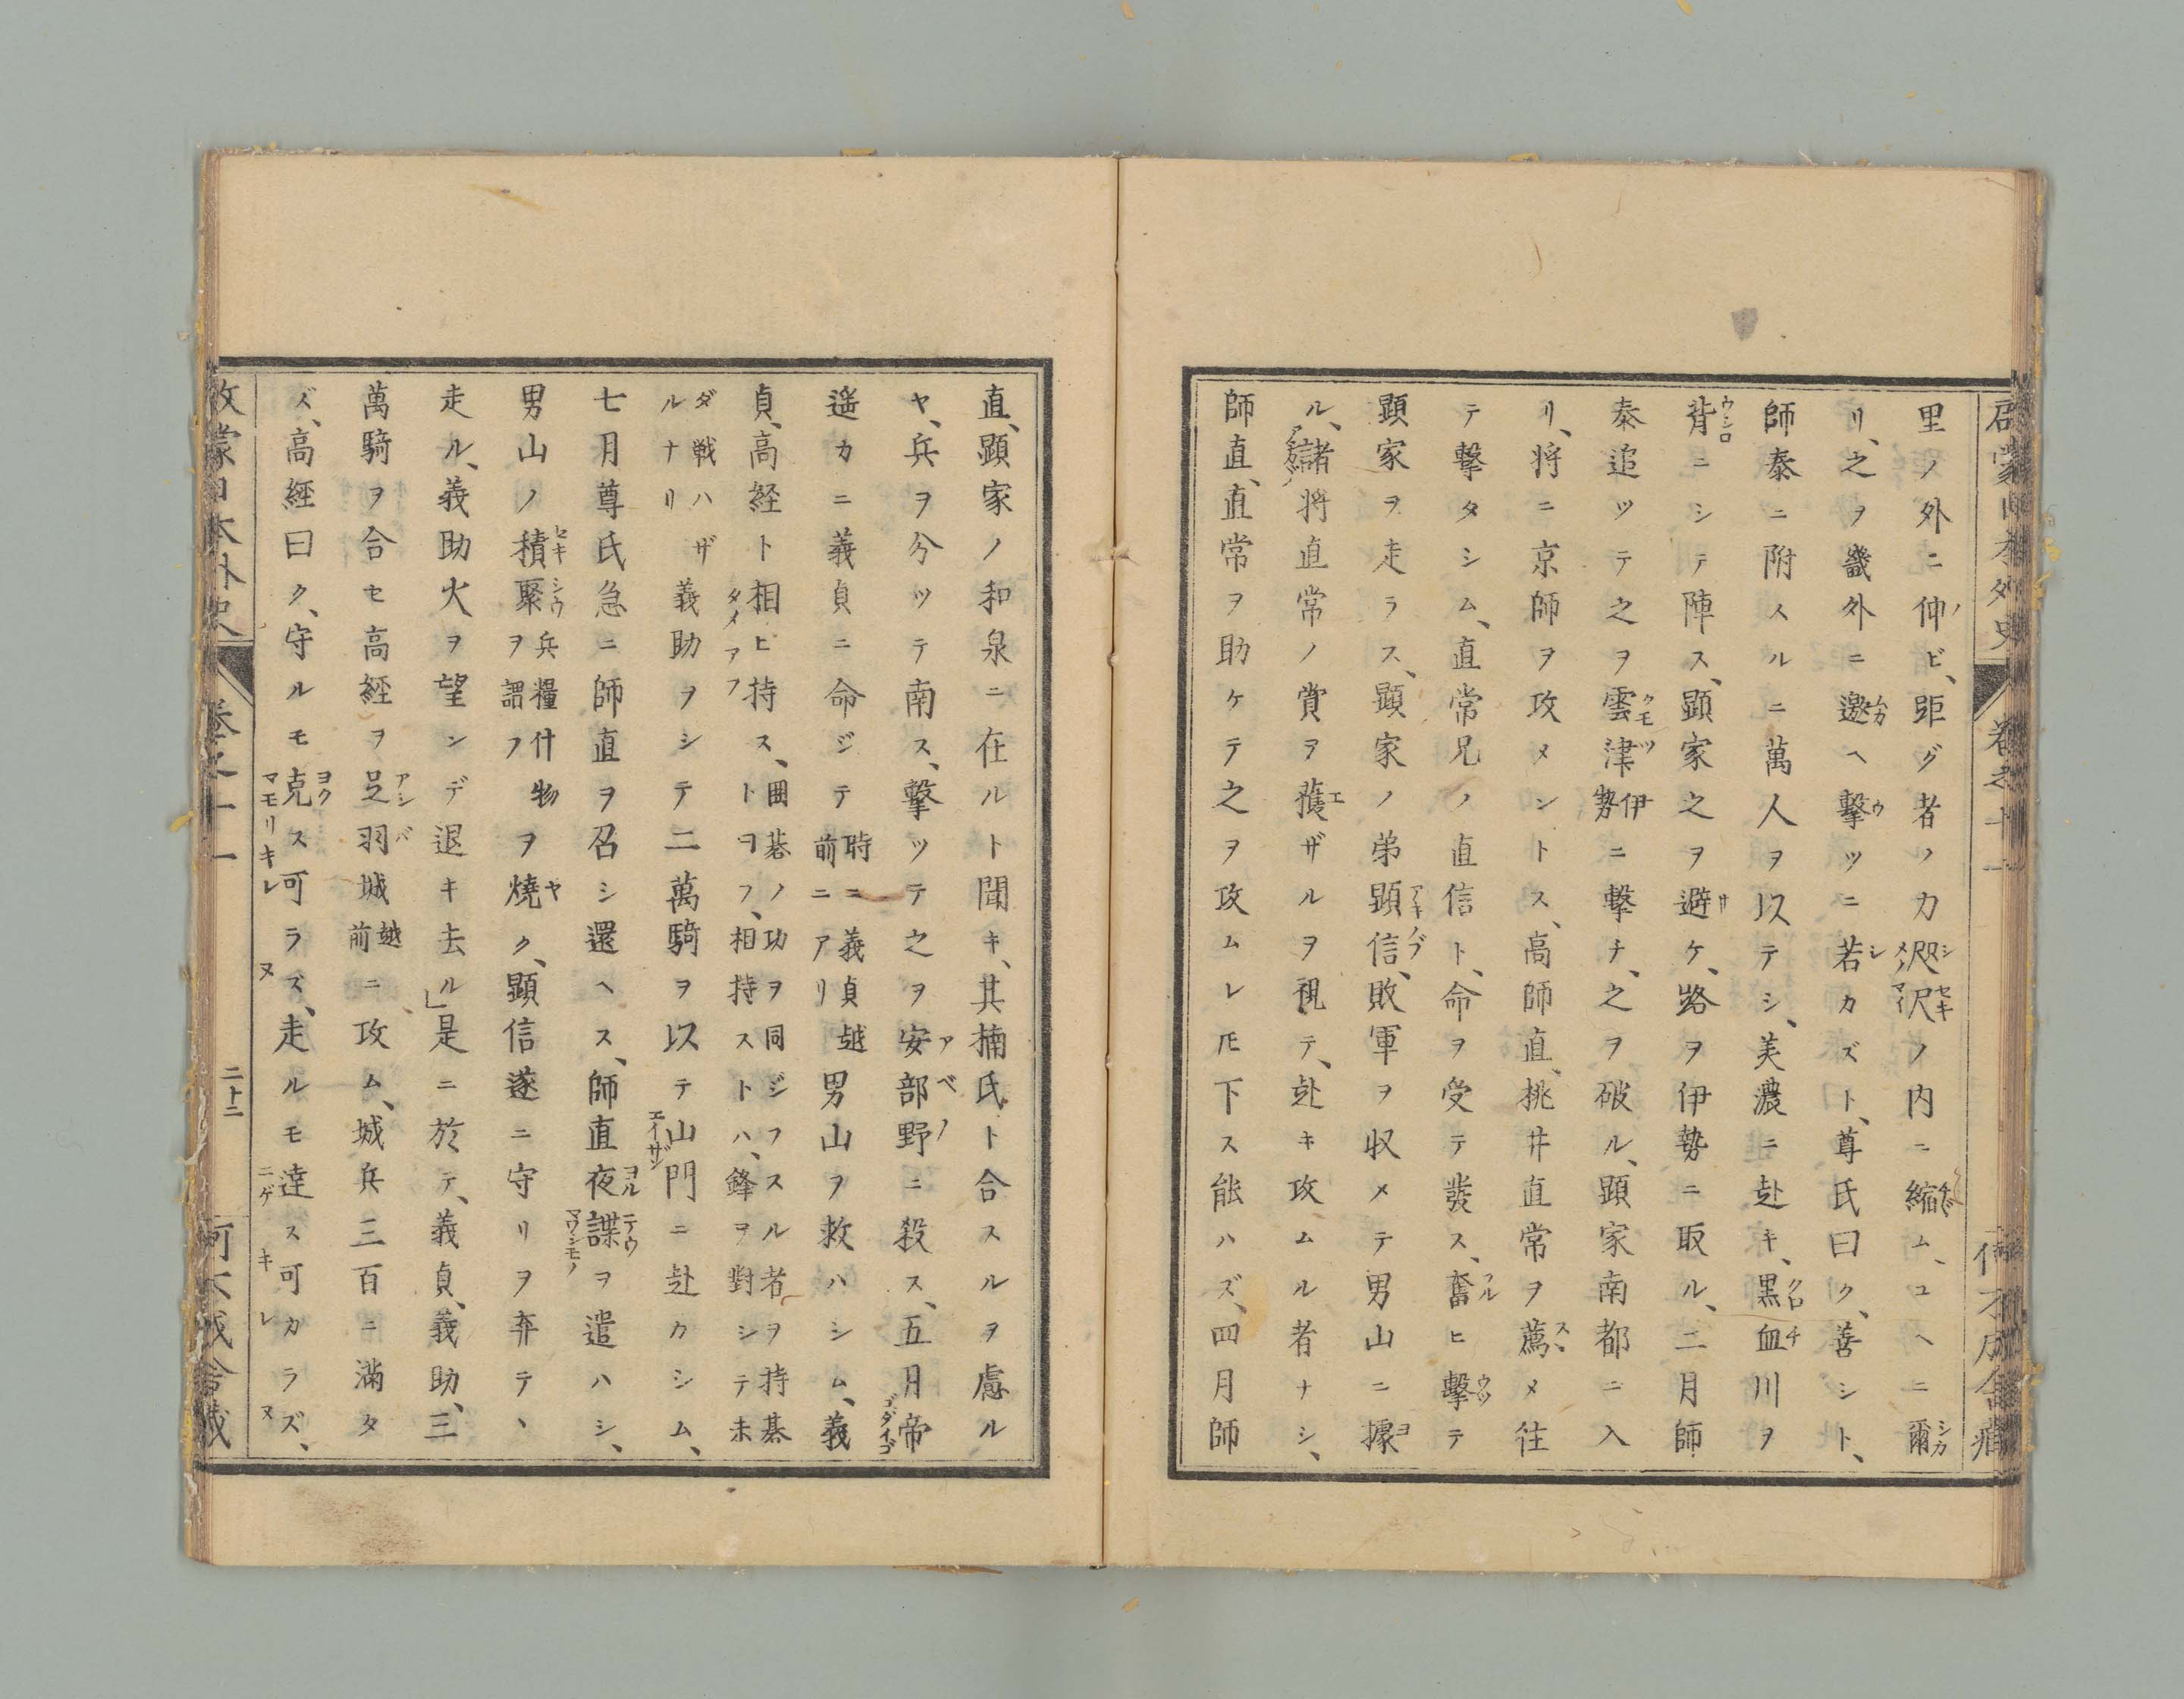 里ノ外ニ伸ビ、距グ者ノ力咫尺ノ内ニ縮ム、ユヘニ爾
リ、之ヲ畿外ニ邀ヘ撃ツニ若カズト、尊氏曰ク、善シト、
師泰ニ附スルニ萬人ヲ以テシ、美濃ニ赴キ、黒血川ヲ
背ニシテ陣ス、顕家之ヲ避ケ、路ヲ伊勢ニ取ル、二月師
泰追ツテ之ヲ雲津伊勢ニ撃チ、之ヲ破ル、顕家南都ニ入
リ、将ニ京師ヲ攻メントス、高師直、桃井直常ヲ薦メ往
テ撃タシム、直常兄ノ直信ト、命ヲ受テ發ス、奮ヒ撃テ
顕家ヲ走ラス、顕家ノ弟顕信、敗軍ヲ収メテ男山ニ據
ル、諸将直常ノ賞ヲ獲ザルヲ視テ、赴キ攻ムル者ナシ、
師直、直常ヲ助ケテ之ヲ攻ムレ𪜈下ス能ハズ、四月師
直、顕家ノ和泉ニ在ルト聞キ、其楠氏ト合スルヲ慮ル
ヤ、兵ヲ分ツテ南ス、撃ツテ之ヲ安部野ニ殺ス、五月帝
遥カニ義貞ニ命ジテ時ニ義貞越前ニアリ男山ヲ救ハシム、義
貞、高経ト相ヒ持ス、囲碁ノ功ヲ同ジフスル者ヲ持碁トヲフ、相持ストハ、鋒ヲ對シテ未
ダ戦ハザルナリ義助ヲシテ二萬騎ヲ以テ山門ニ赴カシム、
七月尊氏急ニ師直ヲ召シ還ヘス、師直夜諜ヲ遣ハシ、
男山ノ積聚兵糧什物ヲ謂フヲ燒ク、顕信遂ニ守リヲ弃テヽ
走ル、義助火ヲ望ンデ退キ去ル」是ニ於テ、義貞、義助、三
萬騎ヲ合セ高経ヲ足羽城越前ニ攻ム、城兵三百ニ満タ
ズ、高経曰ク、守ルモ克ス可ラズ、走ルモ達ス可カラズ、
二十二